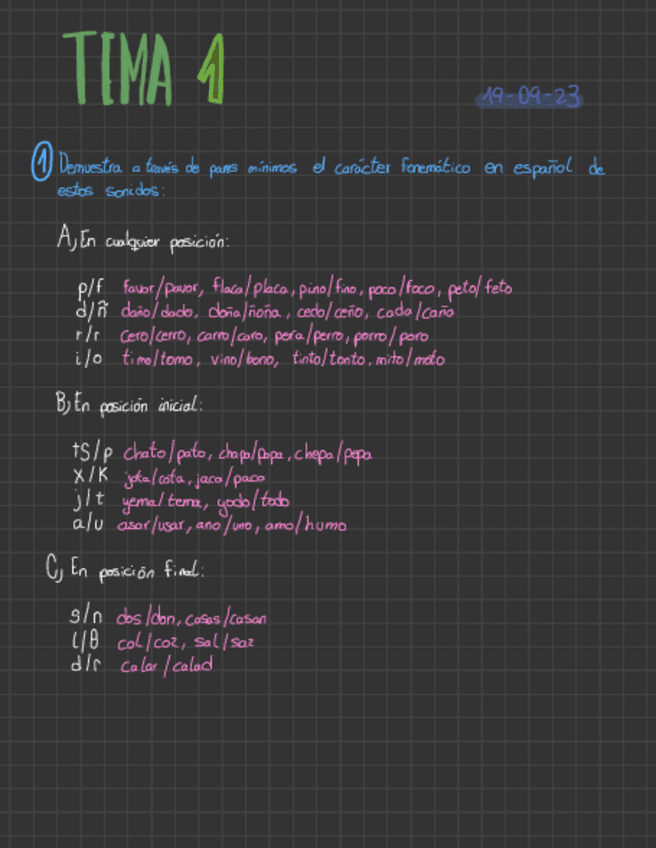 TEMA 1
19-09-23
1 Demuestra a través de pares mínimos el carácter fonemático en español de
estos sonidos:
A) En cualquier posición:
p/f favor/pavor, flaca/placa, pino/fino, poco/foco, peto/feto
d/ñ daño/dado, doña/ñoña, cedo/ceño, cada/caña
r/r cero/cerro, carro/caro, pera/perro, porro/poro
i/o timo/tomo, vino/bono, tinto/tonto, mito/moto
B) En posición inicial:
tS/p chato/pato, chapa/papa, chepa/pepa
x/K jota/cota, jaco/paco
j/t yema/tema, yodo/todo
a/u asar/usar, ano/uno, amo/humo
C) En posición final:
s/n dos/don, casas/casan
l/θ col/coz, sal/saz
d/r calar/calad